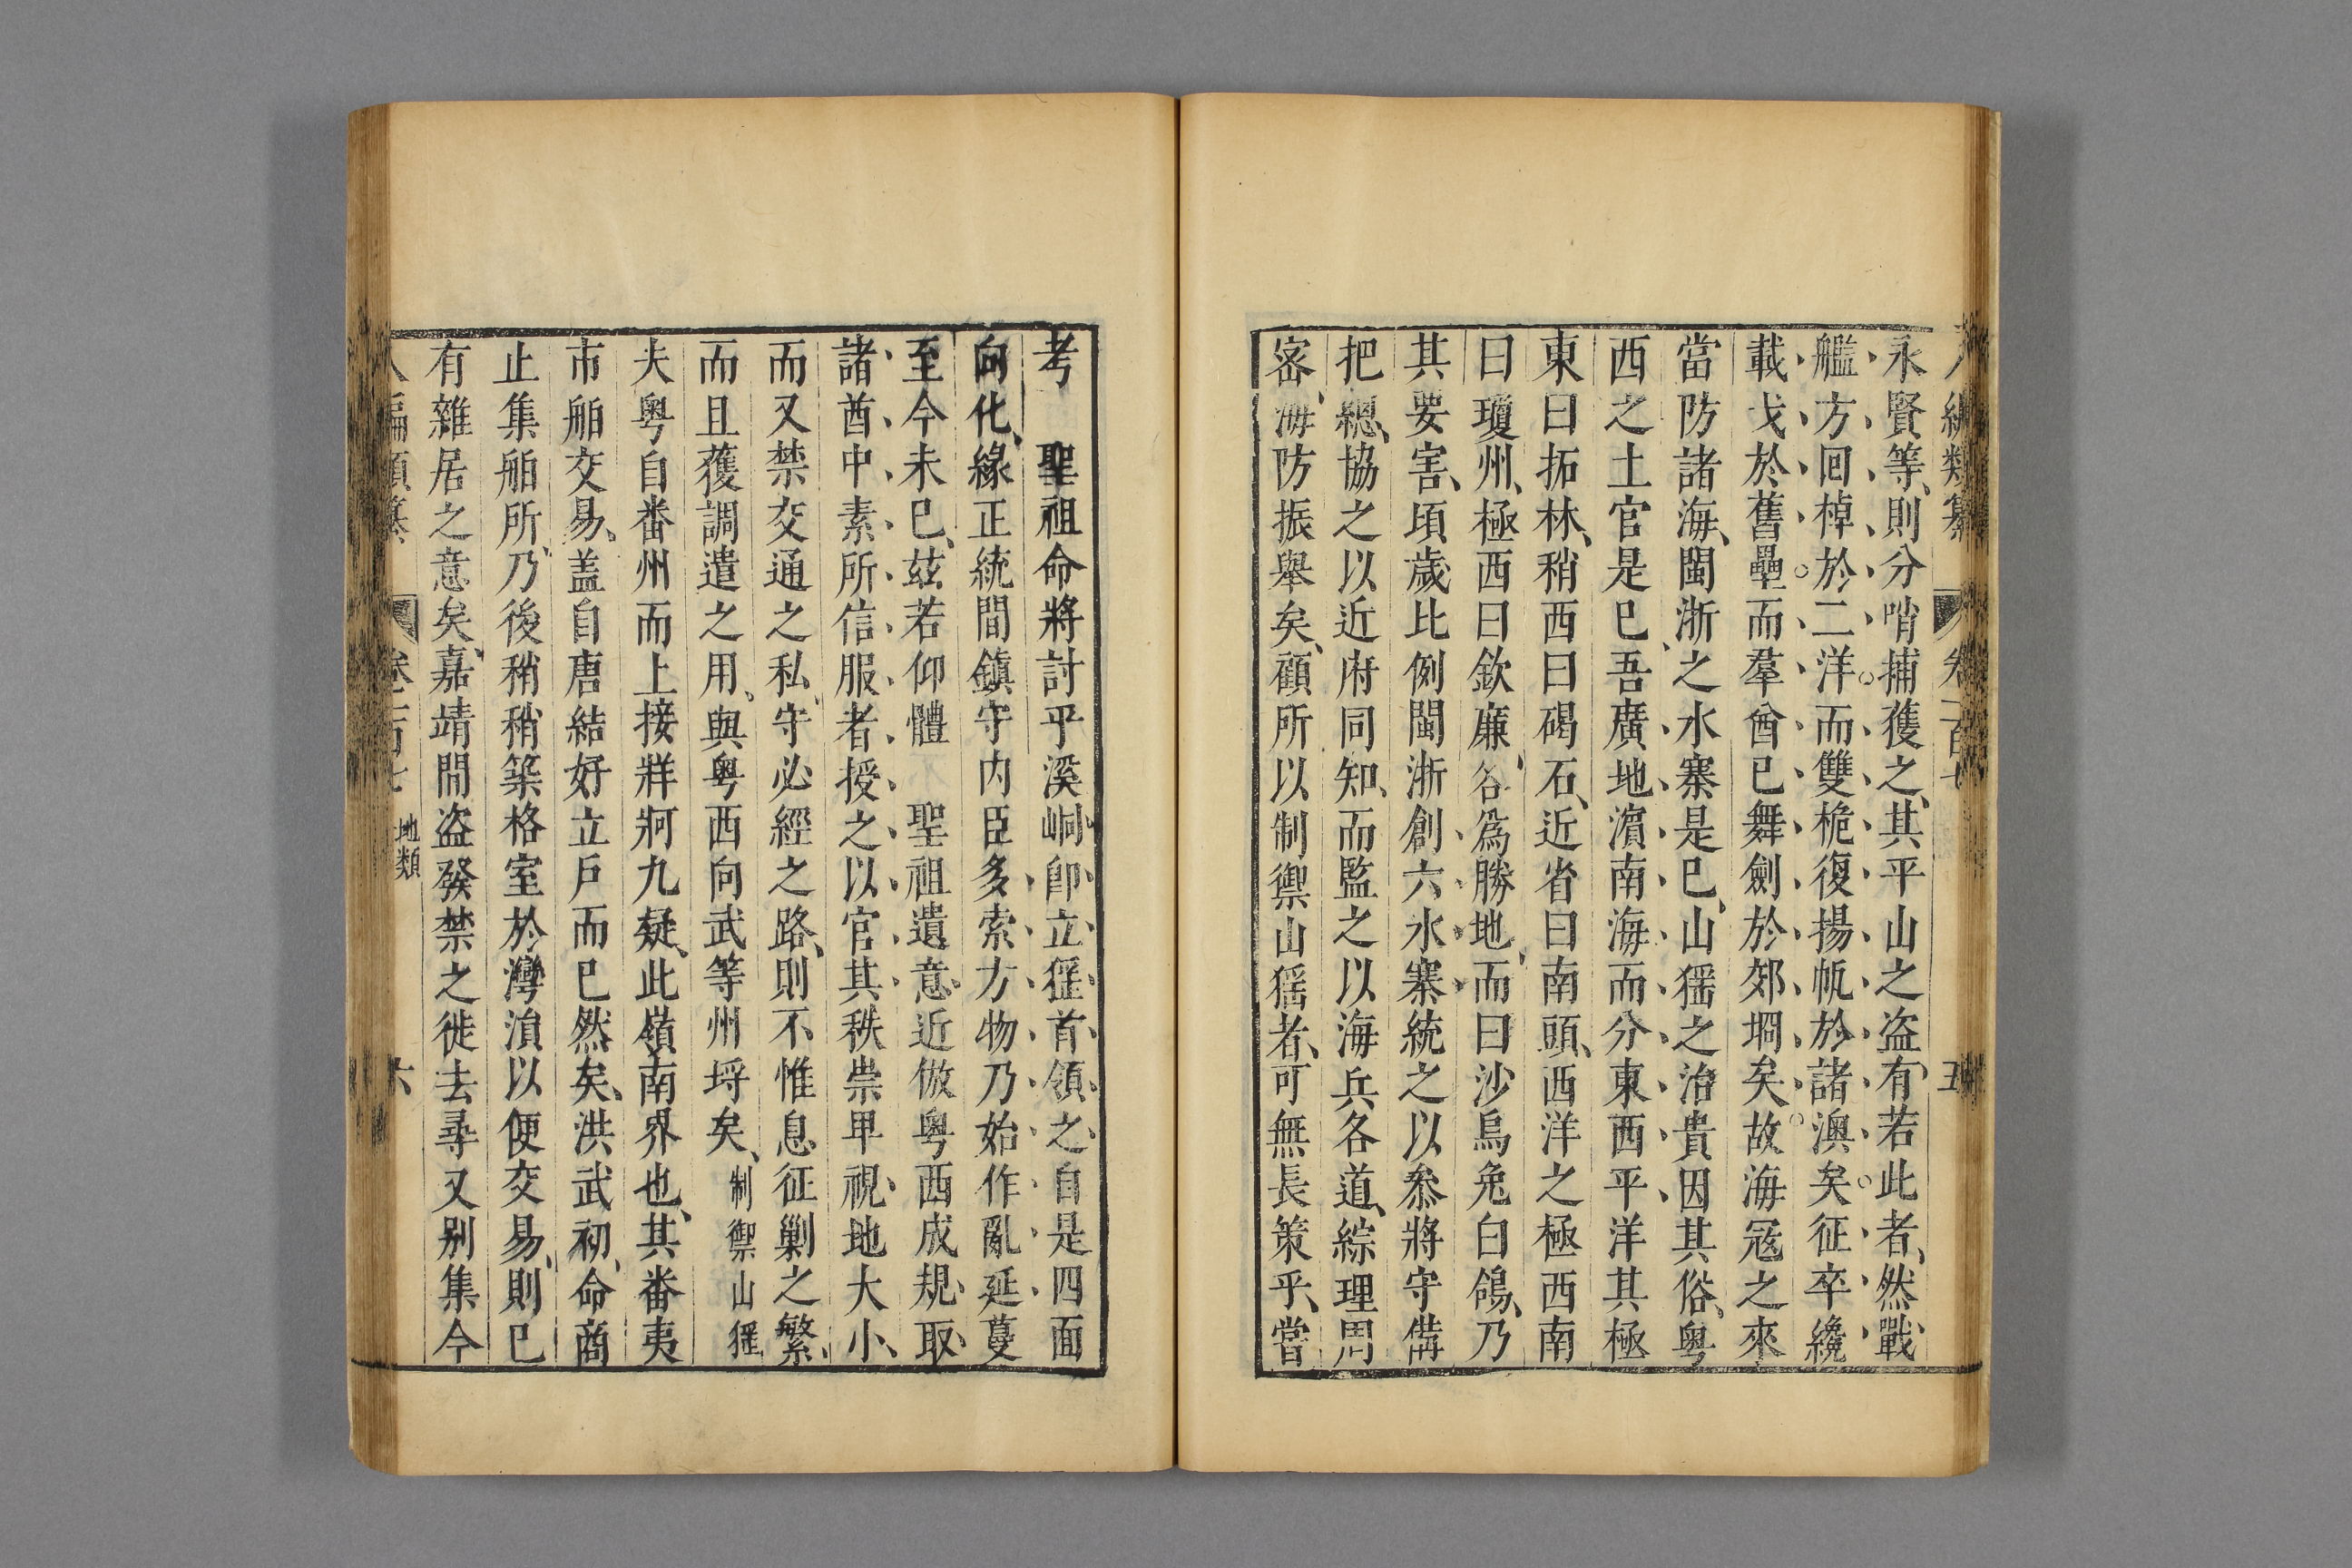 八編類纂 卷二百七 五
永賢等則分哨捕獲之其平山之盜有若此者然戰
艦方囘棹於二洋而雙桅復揚帆於諸澳矣征卒纔
載戈於舊壘而羣酋已舞劍於郊坰矣故海寇之來
當防諸海閩浙之水寨是已山猺之治貴因其俗粵
西之土官是已吾廣地濵南海而分東西平洋其極
東曰拓林稍西曰碣石近省曰南頭西洋之極西南
曰瓊州極西曰欽廉各爲勝地而曰沙烏兔白鴿乃
其要害頃歲比例閩浙創六水寨統之以叅將守備
把總協之以近府同知而監之以海兵各道綜理周
密海防振舉矣顧所以制禦山猺者可無長策乎嘗
考 聖祖命將討平溪峒卽立猺首領之自是四面
向化緣正統間鎮守内臣多索方物乃始作亂延蔓
至今未已茲若仰體 聖祖遺意近倣粵西成規取
諸酋中素所信服者授之以官其秩崇卑視地大小
而又禁交通之私守必經之路則不惟息征剿之繁
而且獲調遣之用與粵西向武等州埒矣制禦山猺
夫粵自番州而上接牂牁九疑此嶺南界也其番夷
市舶交易盖自唐結好立戶而已然矣洪武初命商
止集舶所乃後稍稍築格室於灣湏以便交易則已
有雜居之意矣嘉靖間盜發禁之徙去尋又别集今
八編類纂 卷二百七 地類 六